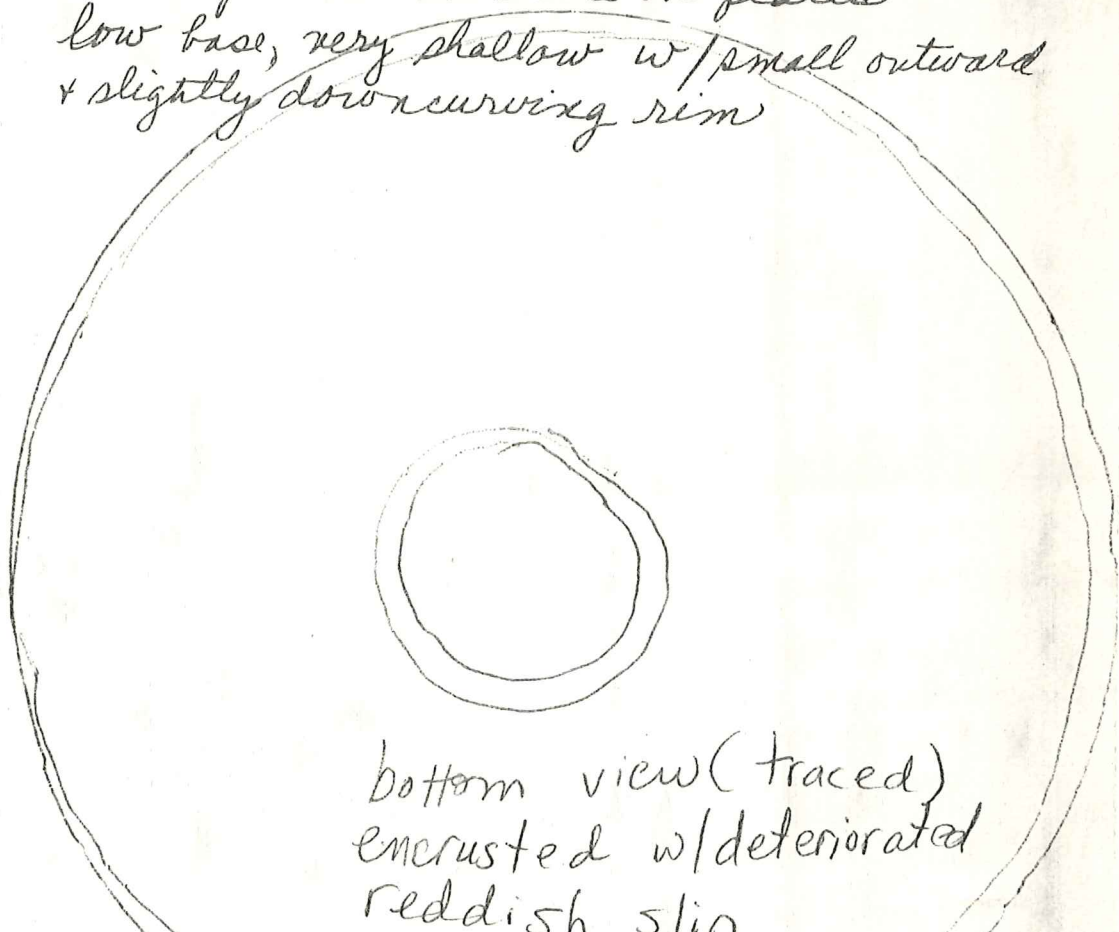 low base, very shallow w/small outward
& slightly downcurving rim
bottom view (traced)
encrusted w/deteriorated
reddish slip